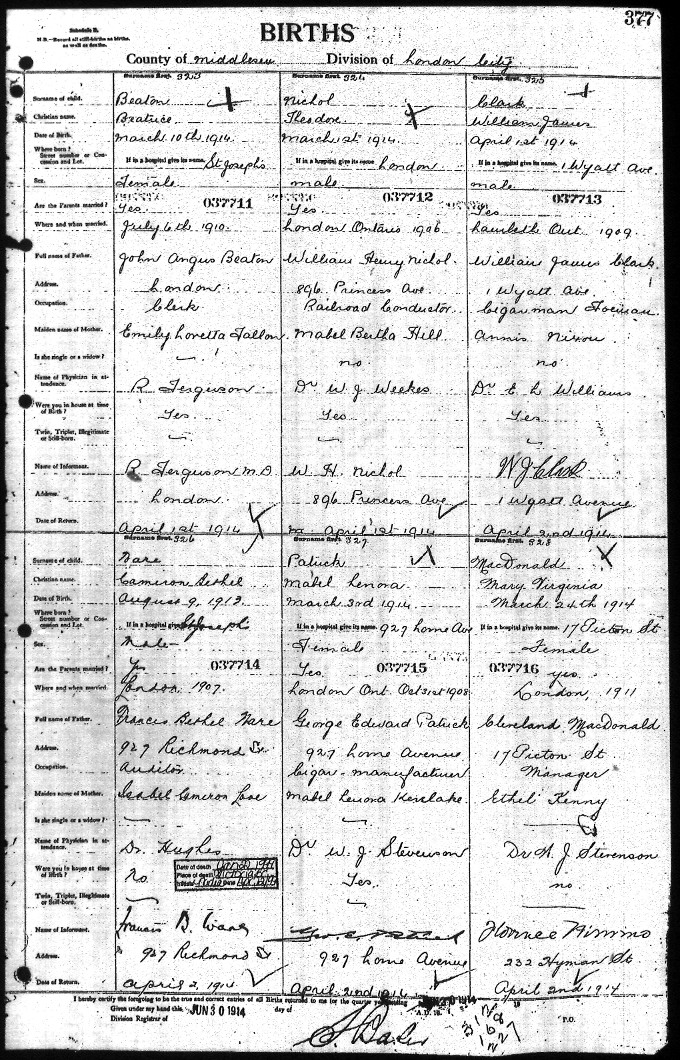 377
Schedule B.
N. B.—Record all still-births as births,
as well as deaths.
BIRTHS
County of Middlesex Division of London City
Surname first. 323 Surname first. 324 Surname first. 325
Surname of child. Beaton Nichol Clark
Christian name. Beatrice Theodore William James
Date of Birth. March 10th 1914 March 1st 1914 April 1st 1914
Where born?
Street number or Concession and Lot. If in a hospital give its name. St Josephs If in a hospital give its name London If in a hospital give its name. 1 Wyatt Ave.
Sex. Female male male
037711 037712 037713
Are the Parents married? Yes. Yes. Yes
Where and when married. July 6th 1910. London Ontario 1906 Ont 1909.
Full name of Father. John Angus Beaton William Henry Nichol. William James Clark.
Address. London 896 Princess Ave. 1 Wyatt Ave
Occupation. Clerk Railroad Conductor
Maiden name of Mother. Emily Loretta Fallon. Mabel Bertha Hill Annis Nixon
Is she single or a widow? no no
Name of Physician in attendance. R Ferguson Dr W J Weekes Dr E L Williams
Were you in house at time of Birth? Yes. Yes Yes
Twin, Triplet, Illegitimate or Still-born.
Name of Informant. R Ferguson M.D. W. H. Nichol W J Clark
Address. London 896 Princess Ave 1 Wyatt Avenue
Date of Return. April 1st 1914 April 1st 1914 April 2nd 1914
Surname first. 326 Surname first. 327 Surname first. 328
Surname of child. Ware Patrick MacDonald
Christian name. Cameron Bethel Mabel Lenora Mary Virginia
Date of Birth. August 9, 1913 March 3rd 1914 March 24th 1914
Where born?
Street number or Concession and Lot. If in a hospital give St Josephs If in a hospital give its name. 927 Lorne Ave If in a hospital give its name. 17 Picton St
Sex. Male Female Female
037714 037715 037716
Are the Parents married? Yes Yes. yes
Where and when married. London. 1907. London Ont. Oct 31st 1908 London, 1911
Full name of Father. Francis Bethel Ware George Edward Patrick Cleveland MacDonald
Address. 927 Richmond St 927 Lorne Avenue 17 Picton St
Occupation. Auditor Cigar-manufacturer Manager
Maiden name of Mother. Isabel Cameron Love Mabel Lenora Kerslake. Ethel Kenny
Is she single or a widow?
Name of Physician in attendance. Dr. Hughes Dr W. J. Stevenson Dr W. J. Stevenson
Date of death
Place of death
Were you in house at time of Birth? No Yes. no
Twin, Triplet, Illegitimate or Still-born.
Name of Informant. Francis B. Ware Geo. E. Patrick Nimmo
Address " 927 Richmond St 927 Lorne Avenue 232 Hyman St
Date of Return. April 2, 1914. April 2nd 1914 April 2nd 1914
I hereby certify the foregoing to be the true and correct entries of all Births returned to me for the quarter ending JUN 30 1914 19
Given under my hand this JUN 30 1914 day of A.D. 19
Division Registrar of P.O.